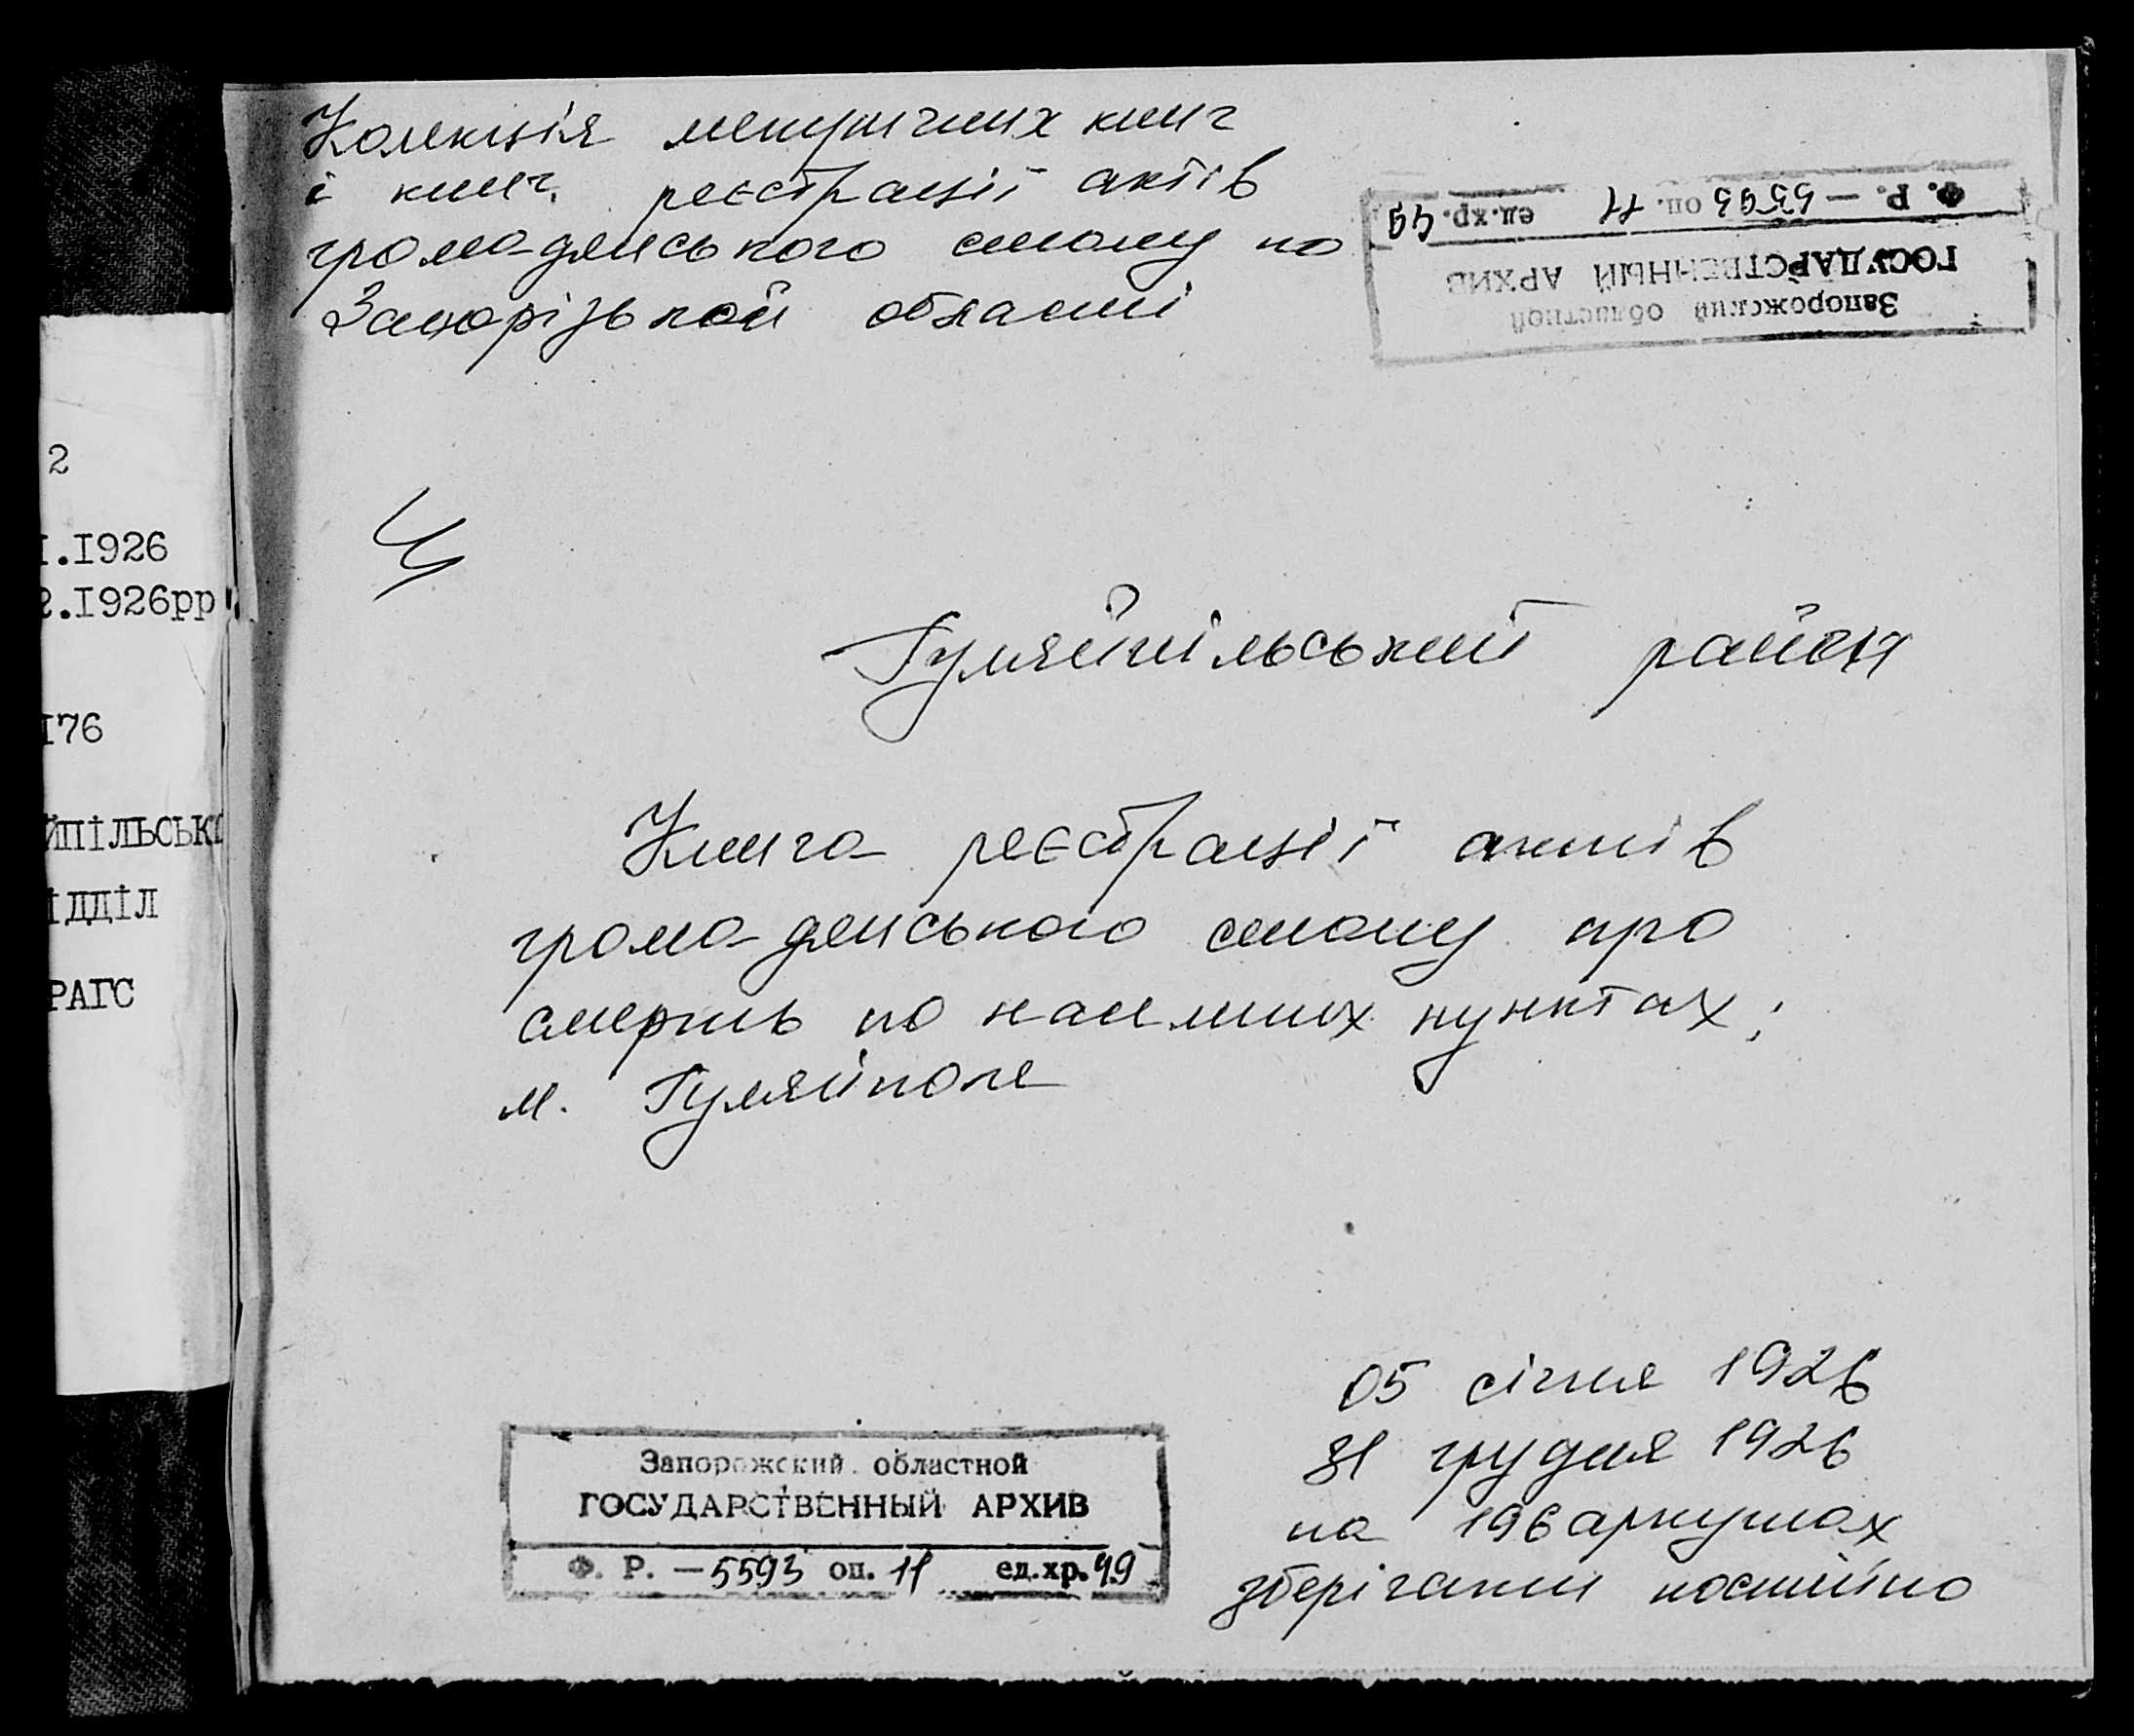 Колекція метричних книг
і книг реєстрації актів
громадянського стану по
Запорізькой області
Ф. Р. — 5593 оп. 11 ед.хр. 49
ГОСУДАРСТВЕННЫЙ АРХИВ
Запорожский областной
2
I.I926
2.I926рр
I76
ЙПІЛЬСЬК
ІДДІЛ
РАГС
Гуляйпільський район
Книга реєстрації актів
громадянського стану про
смерть по населених пунктах:
м. Гуляйполе
05 січня 1926
31 грудня 1926
на 196 аркушах
зберігати постійно
Запорожский областной
ГОСУДАРСТВЕННЫЙ АРХИВ
Ф. Р. — 5593 оп. 11 ед.хр. 49